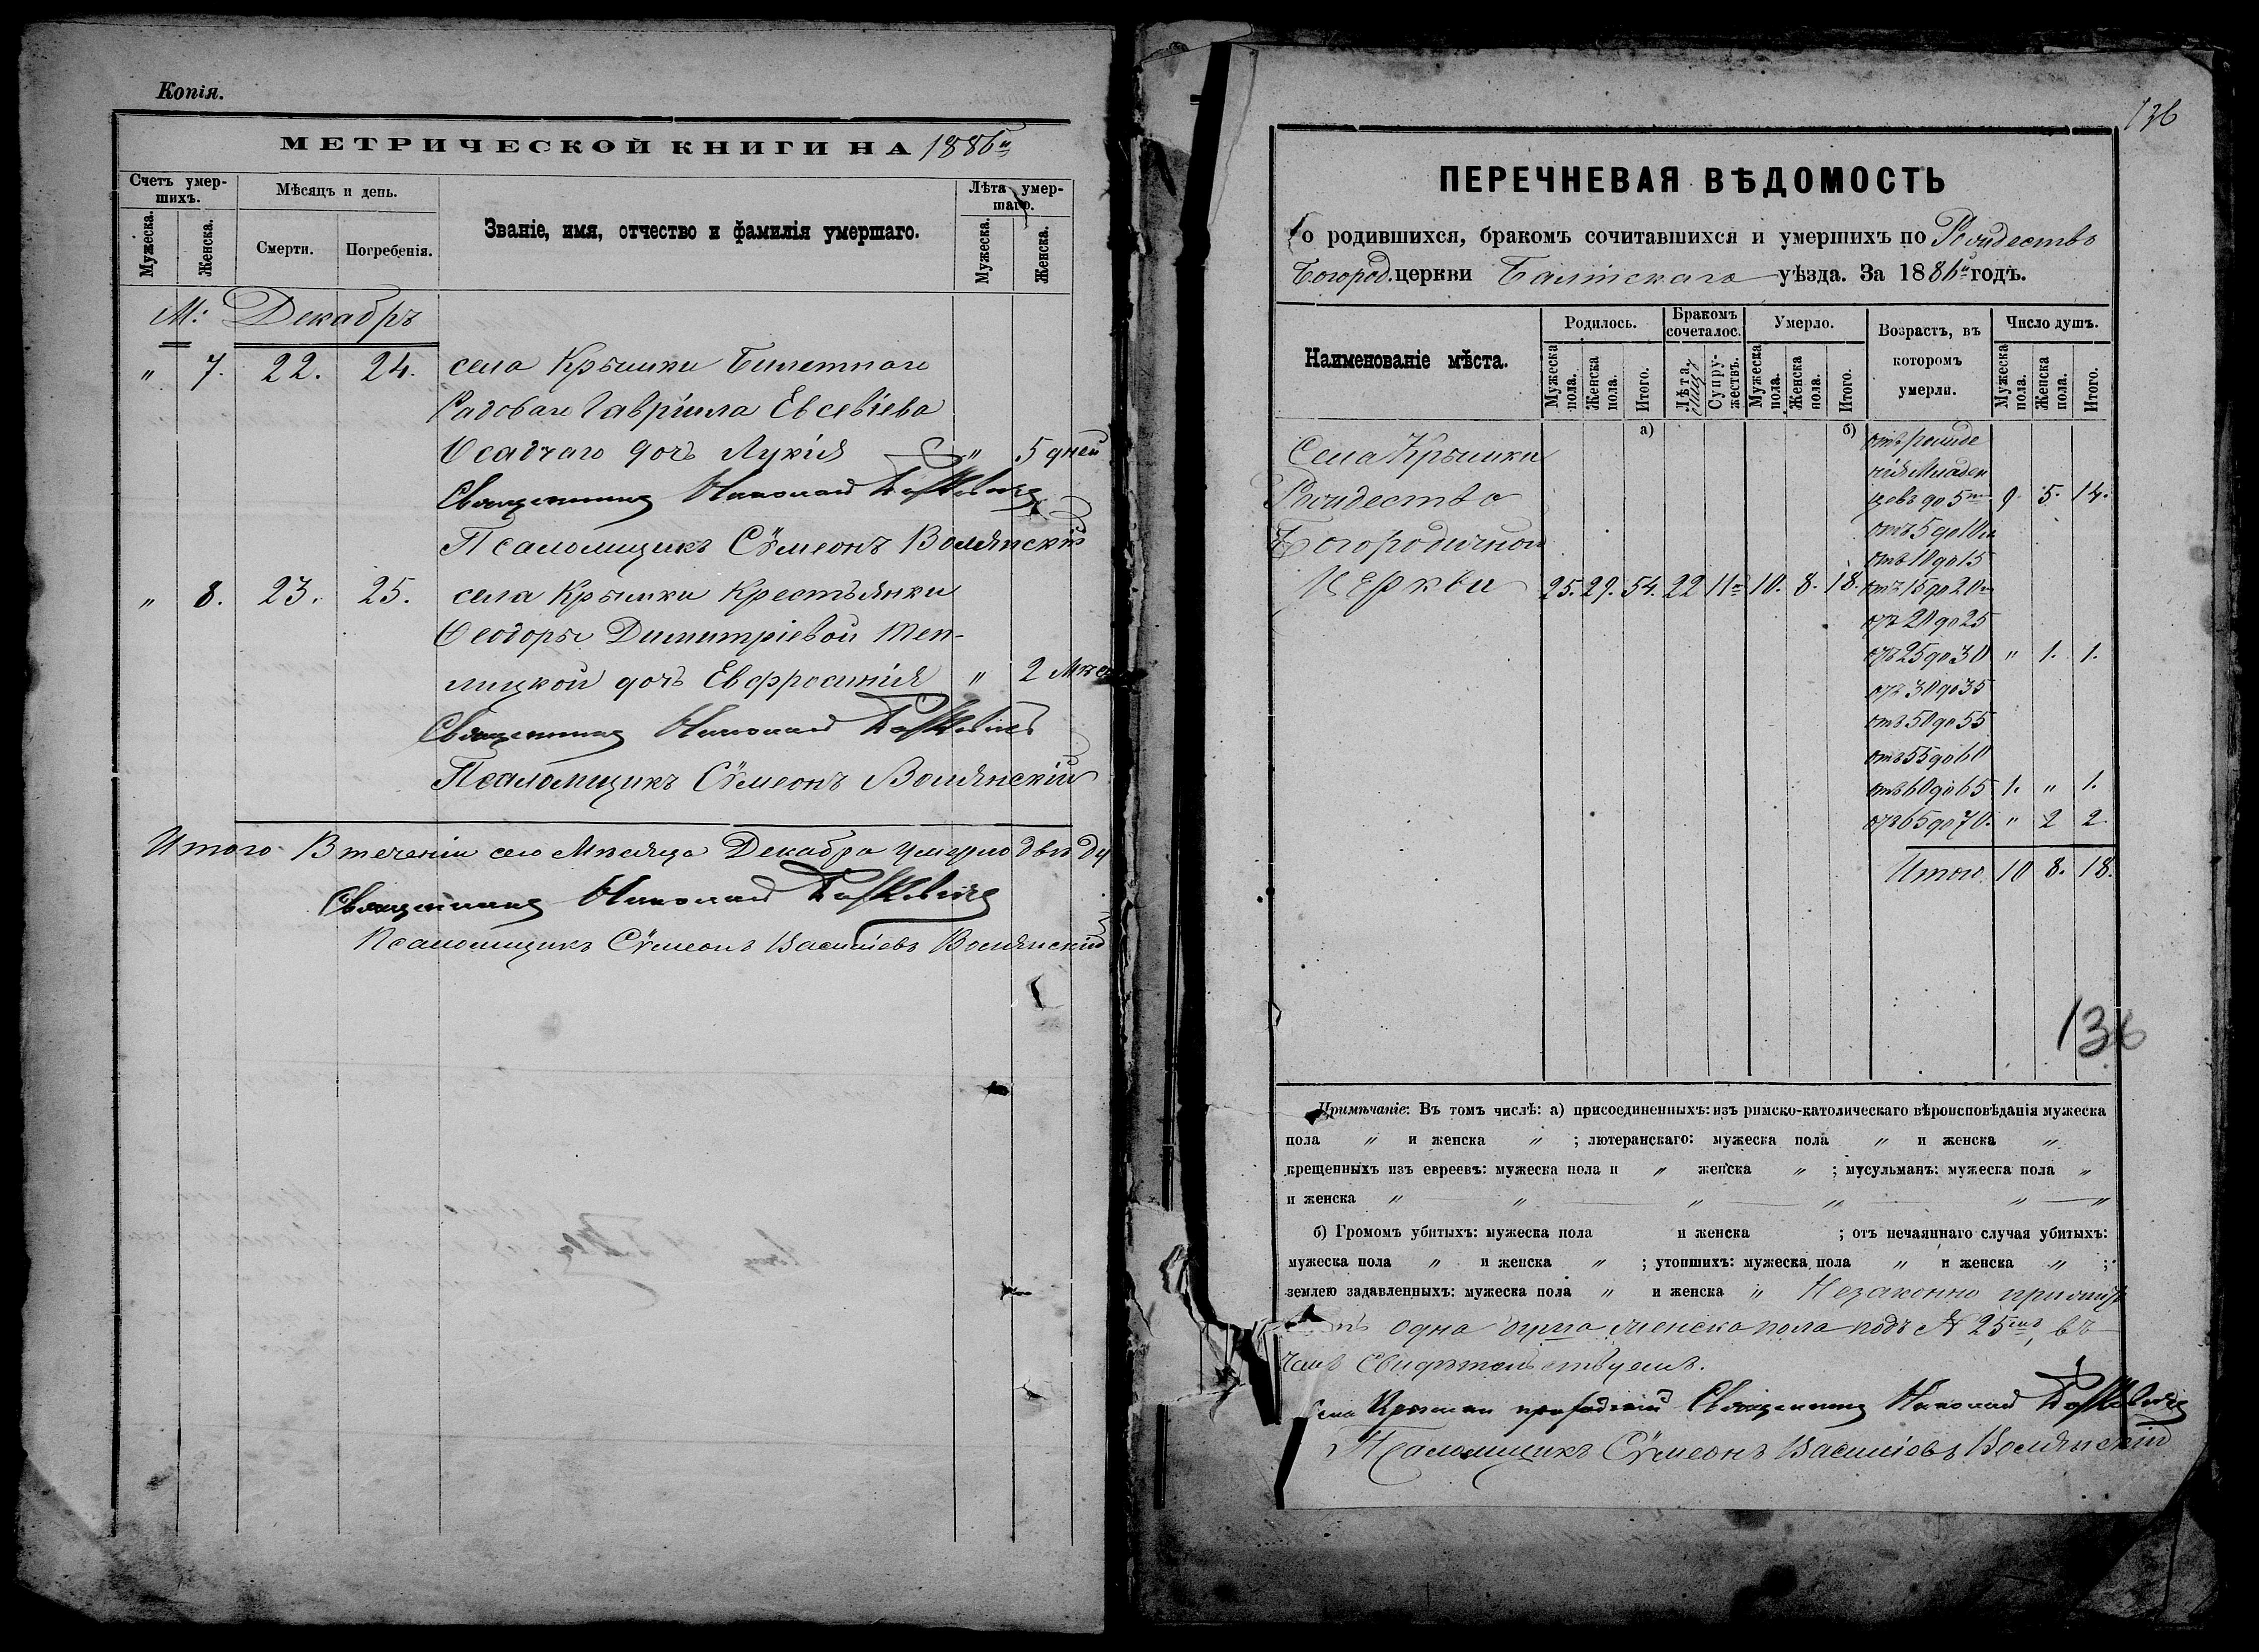 Копія.
МЕТРИЧЕСКОЙ КНИГИ НА 1886й
Счетъ умер-
шихъ.
Мѣсяцъ и день.
Званіе, имя, отчество и фамилія умершаго.
Лѣта умер-
шаго.
Мужеска.
Женска.
Смерти.
Погребенія.
Мужеска.
Женска.
М: Декабрь
" 7. 22. 24. села Крымки Билетнаго
Рядоваго Гавріила Евсевіева
Осадчаго дочь Лукія " 5 дней
Священникъ Николай
Псаломщикъ Сѵмеонъ Волянскій
" 8. 23. 25. села Крымки Крестьянки
Ѳеодоры Димитріевой Теп-
лицкой дочь Евфросинія " 2 Мѣс
Священникъ Николай
Псаломщикъ Сѵмеонъ Волянскій
Итого В теченіи сего Мѣсяца Декабра умерло двѣ ду
Священникъ Николай
Псаломщикъ Сѵмеонъ Василіевъ Волянскій
136
ПЕРЕЧНЕВАЯ ВѢДОМОСТЬ
о родившихся, бракомъ сочитавшихся и умершихъ по Рождество
Богород. церкви Балтскаго уѣзда. За 1886й годъ.
Наименованіе мѣста.
Родилось.
Бракомъ
сочеталос.
Умерло.
Возрастъ, въ
котором­ъ
умерли.
Число душъ.
Мужеска
пола.
Женска
пола.
Итого.
Лѣта.
Супру-
жествъ.
Мужеска
пола.
Женска
пола.
Итого.
Мужеска
пола.
Женска
пола.
Итого.
а)
б)
Села Крымки
Рождество
Богородичной
Церкви 25. 29. 54. 22 11 10. 8. 18.
отъ рожде
нія Младен
цевъ до 5 9. 5. 14.
отъ 5 до 10
отъ 10 до 15
отъ 15 до 20
отъ 20 до 25
отъ 25 до 30 " 1. 1.
отъ 30 до 35
отъ 50 до 55
отъ 55 до 60
отъ 60 до 65 1. " 1.
отъ 65 до 70. " 2 2.
Итого 10 8. 18.
136
Примѣчаніе: Въ томъ числѣ: а) присоединенныхъ: изъ римско-католическаго вѣроисповѣданія мужеска
пола " и женска " ; лютеранскаго: мужеска пола " и женска "
крещенныхъ изъ евреевъ: мужеска пола и " женска " ; мусульманъ: мужеска пола "
и женска " " " " " "
б) Громомъ убитыхъ: мужеска пола и женска ; отъ нечаяннаго случая убитыхъ:
мужеска пола " и женска " ; утопшихъ: мужеска пола " и женска " ;
землею задавленныхъ: мужеска пола " и женска " Незаконно
одна душа женска пола подъ № 25, въ
чемъ Свидѣтельствуемъ.
Села Крымки приходскій Священникъ Николай
Псаломщикъ Сѵмеонъ Василіевъ Волянскій